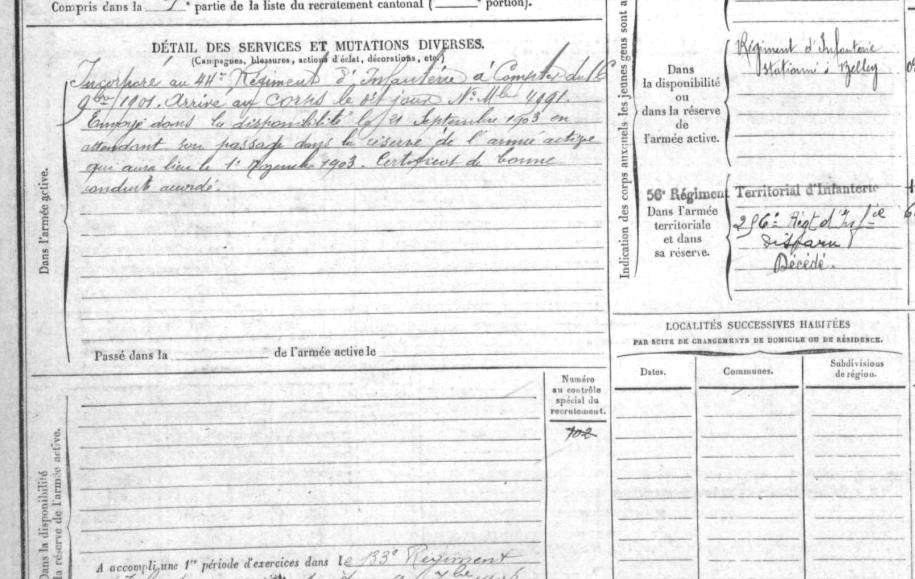 Compris dans la 1e partie de la liste du recrutement cantonal ( e portion).
DÉTAIL DES SERVICES ET MUTATIONS DIVERSES.
(Campagnes, blessures, actions d'éclat, décorations, etc.)
Dans l'armée active.
Incorporé au 44e Régiment d'Infanterie à Compter du 16
9bre 1901. Arrivé au Corps le dit jour N° Mle 4191.
Envoyé dans la disponibilité le 21 Septembre 1903 en
attendant son passage dans la réserve de l'armée active
qui aura lieu le 1er Novembre 1903. Certificat de bonne
conduite accordé.
Passé dans la de l'armée active le
Dans la disponibilité
la réserve de l'armée active.
Numéro
au contrôle
spécial du
recrutement.
702
A accompli une 1re période d'exercices dans le 133e Régiment
Indication des corps auxquels les jeunes gens sont a
Dans
la disponibilité
ou
dans la réserve
de
l'armée active.
Régiment d'Infanterie
stationné à Belley
56e Régiment Territorial d'Infanterie
Dans l'armée
territoriale
et dans
sa réserve.
256e Régt d'Infie
disparu
Décédé.
LOCALITÉS SUCCESSIVES HABITÉES
PAR SUITE DE CHANGEMENTS DE DOMICILE OU DE RÉSIDENCE.
Dates.
Communes.
Subdivisions
de région.